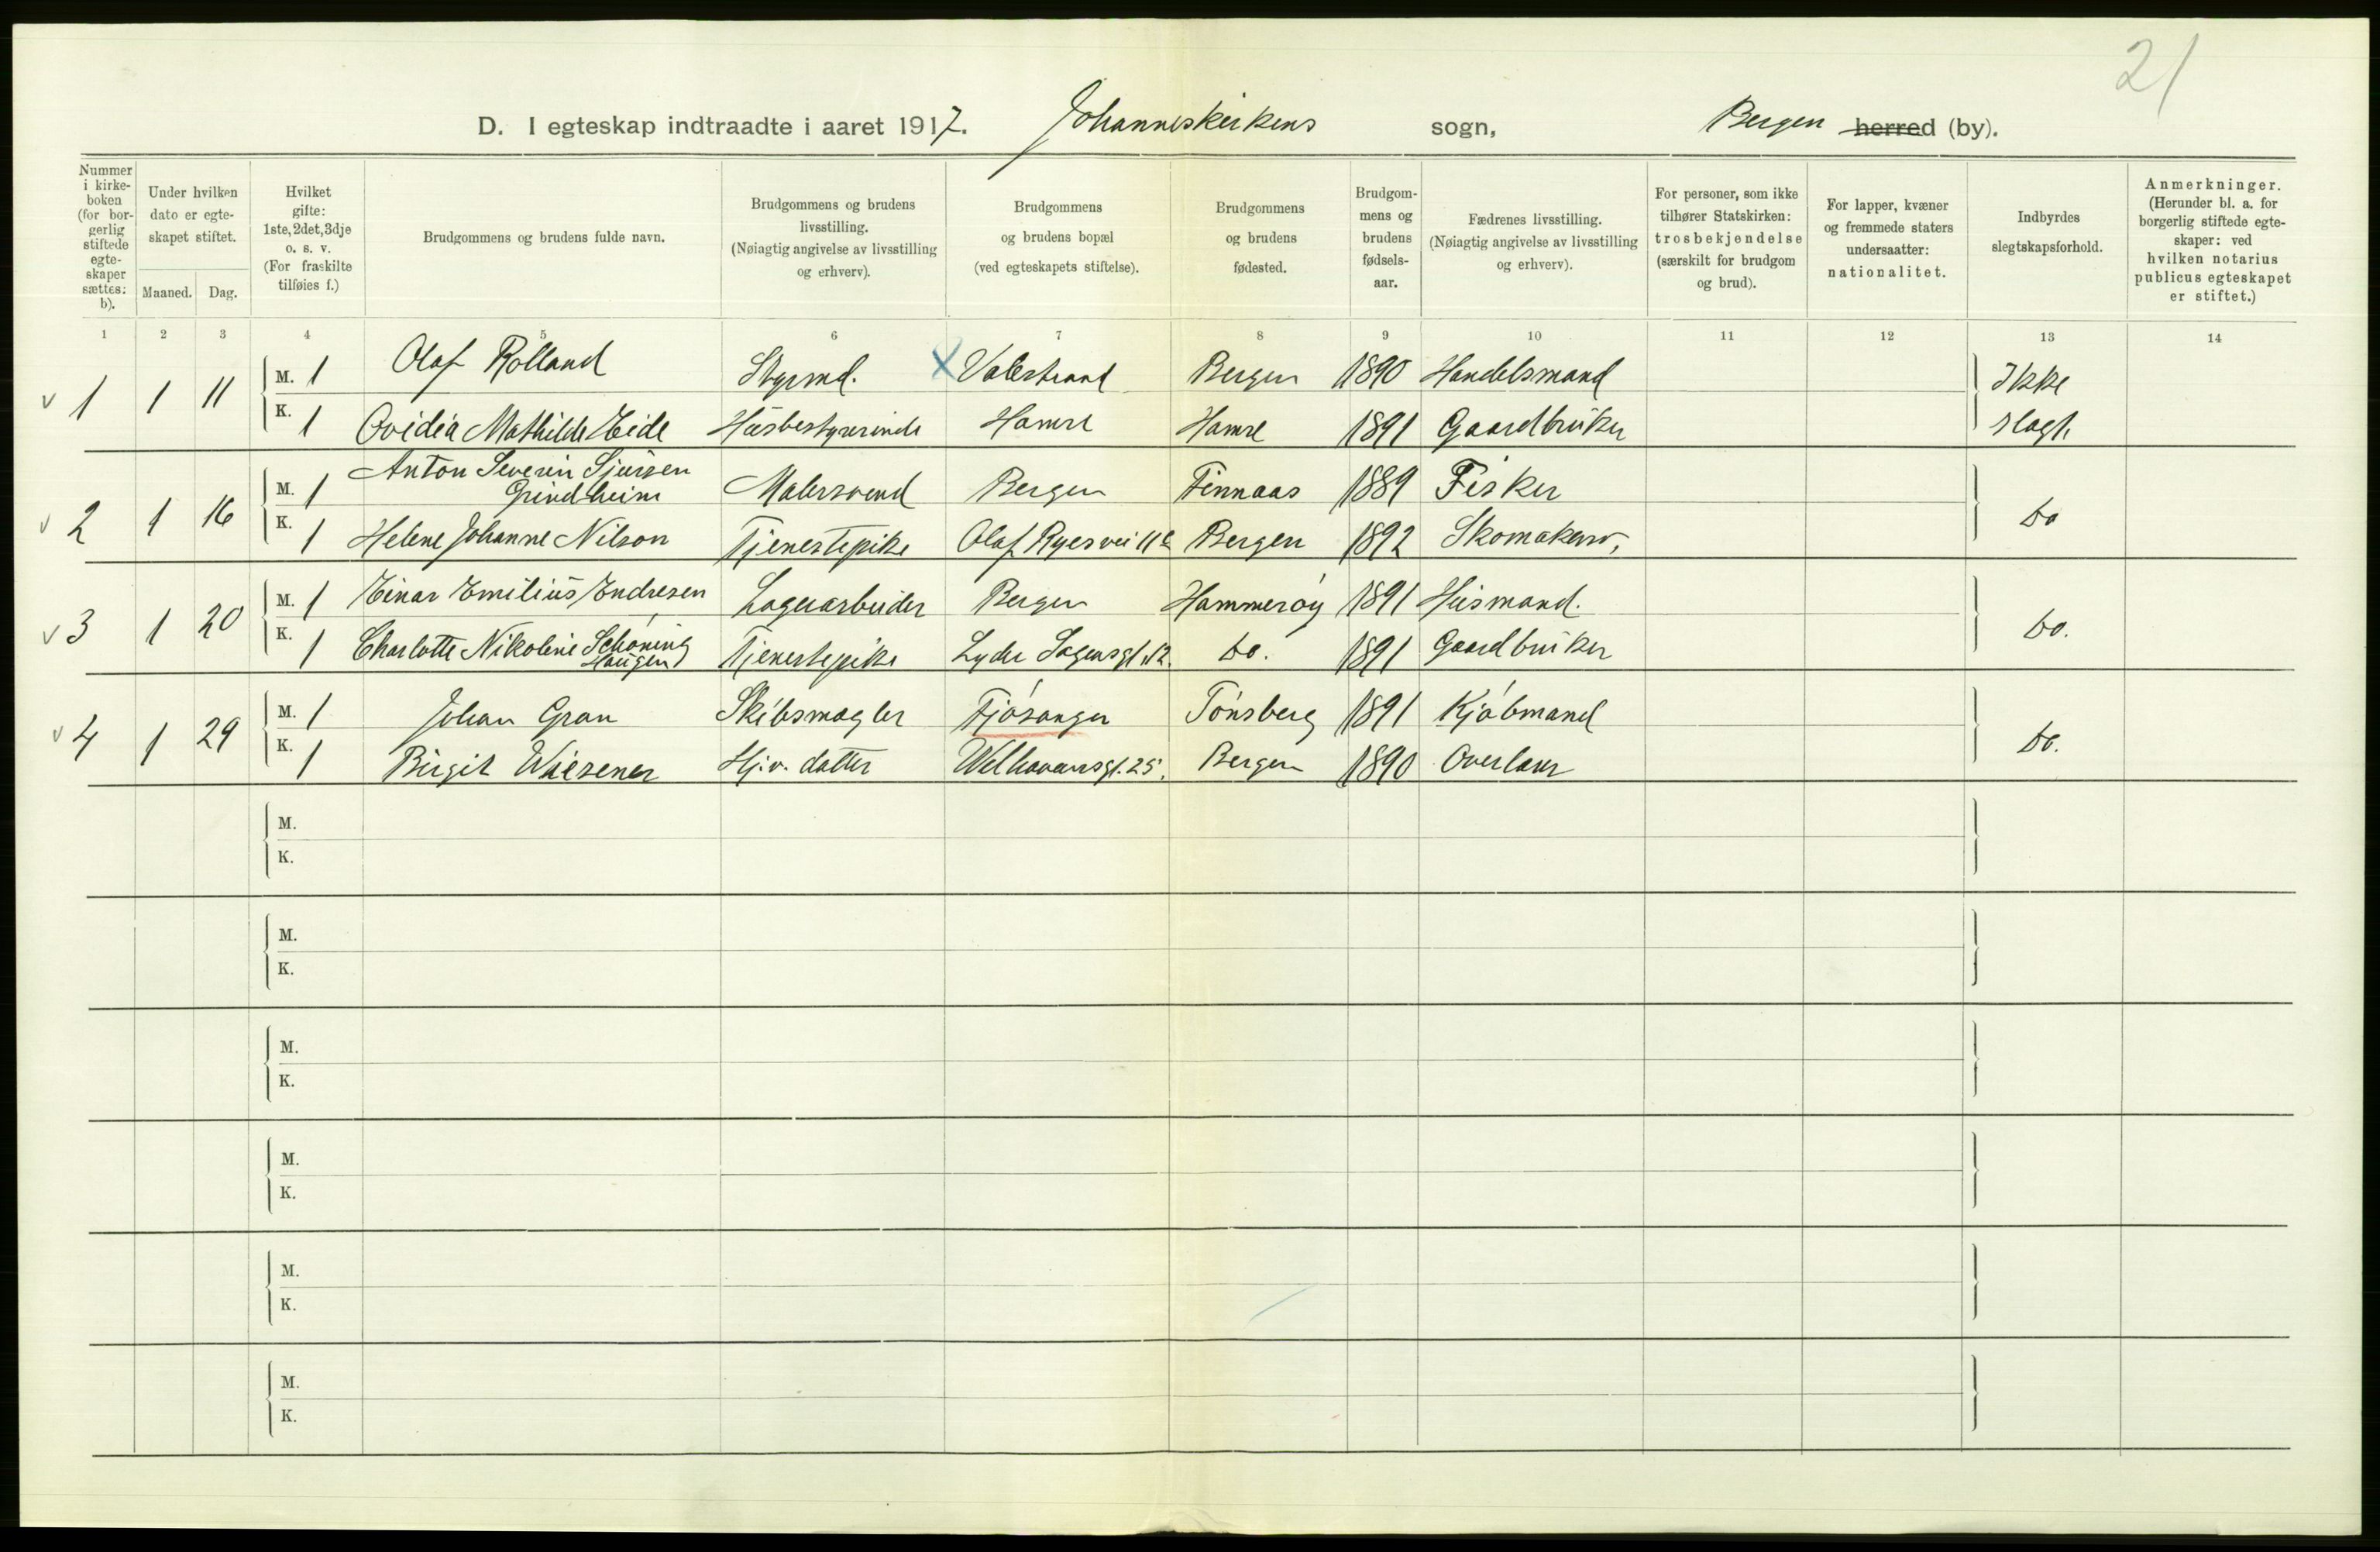 21
D. I egteskap indtraadte i aaret 1917. Johanneskirkens sogn, Bergen herred (by).
Nummer i kirke-boken (for bor-gerlig stiftede egte-skaper sættes: b).
Under hvilken dato er egte-skapet stiftet.
Maaned. Dag.
Hvilket gifte: 1ste, 2det, 3dje o. s. v. (For fraskilte tilføies f.)
Brudgommens og brudens fulde navn.
Brudgommens og brudens livsstilling. (Nøiagtig angivelse av livsstilling og erhverv).
Brudgommens og brudens bopæl (ved egteskapets stiftelse).
Brudgommens og brudens fødested.
Brudgom-mens og brudens fødsels-aar.
Fædrenes livsstilling. (Nøiagtig angivelse av livsstilling og erhverv).
For personer, som ikke tilhører Statskirken: trosbekjendelse (særskilt for brudgom og brud).
For lapper, kvæner og fremmede staters undersaatter: nationalitet.
Indbyrdes slegtskapsforhold.
Anmerkninger. (Herunder bl. a. for borgerlig stiftede egte-skaper: ved hvilken notarius publicus egteskapet er stiftet.)
1 2 3 4 5 6 7 8 9 10 11 12 13 14
v 1 1 11 M. 1 Olaf Rolland Styrmd. X Valestrand Bergen 1890 Handelsmand Ikke
K. 1 Ovidia Mathilde Eide Husbestyrerinde Hamre Hamre 1891 Gaardbruker slegt
v 2 1 16 M. 1 Anton Severin Sjursen Grindheim Malersvend Bergen Finnaas 1889 Fisker do
K. 1 Helene Johanne Nilson Tjenestepike Olaf Ryesvei 11 Bergen 1892 Skomakersv.
v 3 1 20 M. 1 Einar Emilius Endresen Lagerarbeider Bergen Hammerøy 1891 Husmand. do.
K. 1 Charlotte Nikoline Schøning Haugen Tjenestepike Lyder Sagensgt. 12. do. 1891 Gaardbruker
v 4 1 29 M. 1 Johan Gran Skibsmægler Fjøsanger Tønsberg 1891 Kjøbmand do.
K. 1 Birgit Wiesener Hj.v. datter Welhavensgt. 25. Bergen 1890 Overlærer
M.
K.
M.
K.
M.
K.
M.
K.
M.
K.
M.
K.